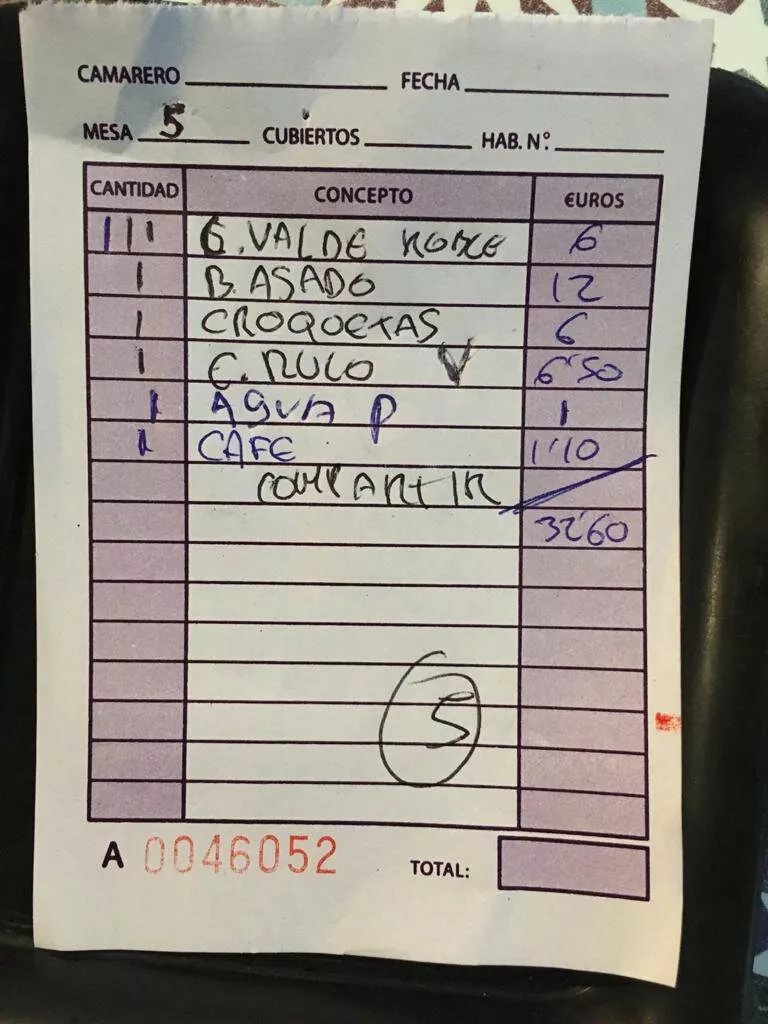 CAMARERO FECHA
MESA 5 CUBIERTOS HAB. N.º
CANTIDAD CONCEPTO €UROS
III C. VALDE ROBLE 6
1 B. ASADO 12
1 CROQUETAS 6
1 C. RULO V 6'50
1 AGUA P 1
1 CAFE 1'10
COMPARTIR
32'60
5
A 0046052 TOTAL: